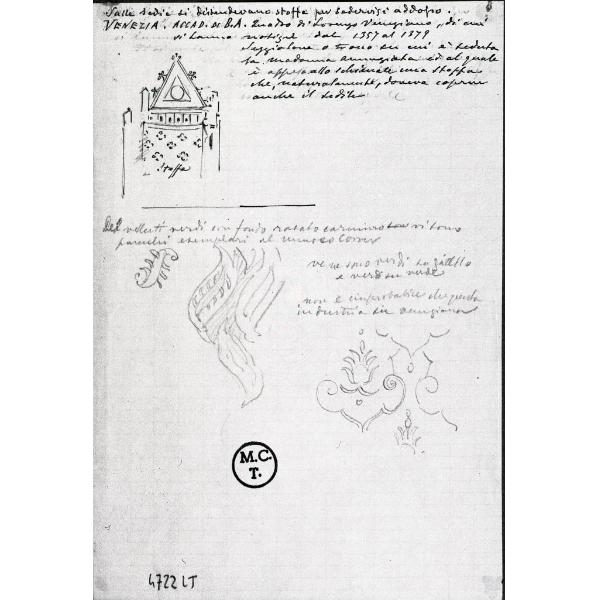 Sulle sedie si distendevano stoffe per sedervisi addosso.
6
VENEZIA. ACCAD. DI B.A. Quadro di Lorenzo Veneziano, di cui
si hanno notizie dal 1357 al 1379
Seggiolone o trono su cui è seduta
la madonna annunziata ed al quale
è appeso allo schienale una stoffa
che, naturalmente, doveva coprire
anche il sedile
Stoffa
Dei velluti verdi con fondo rasato carmino se vi sono
parecchi esemplari al museo Correr
ve ne sono verdi su giallo
e verdi su verde
non è improbabile che questa
industria sia veneziana
M.C.
T.
4722 LT